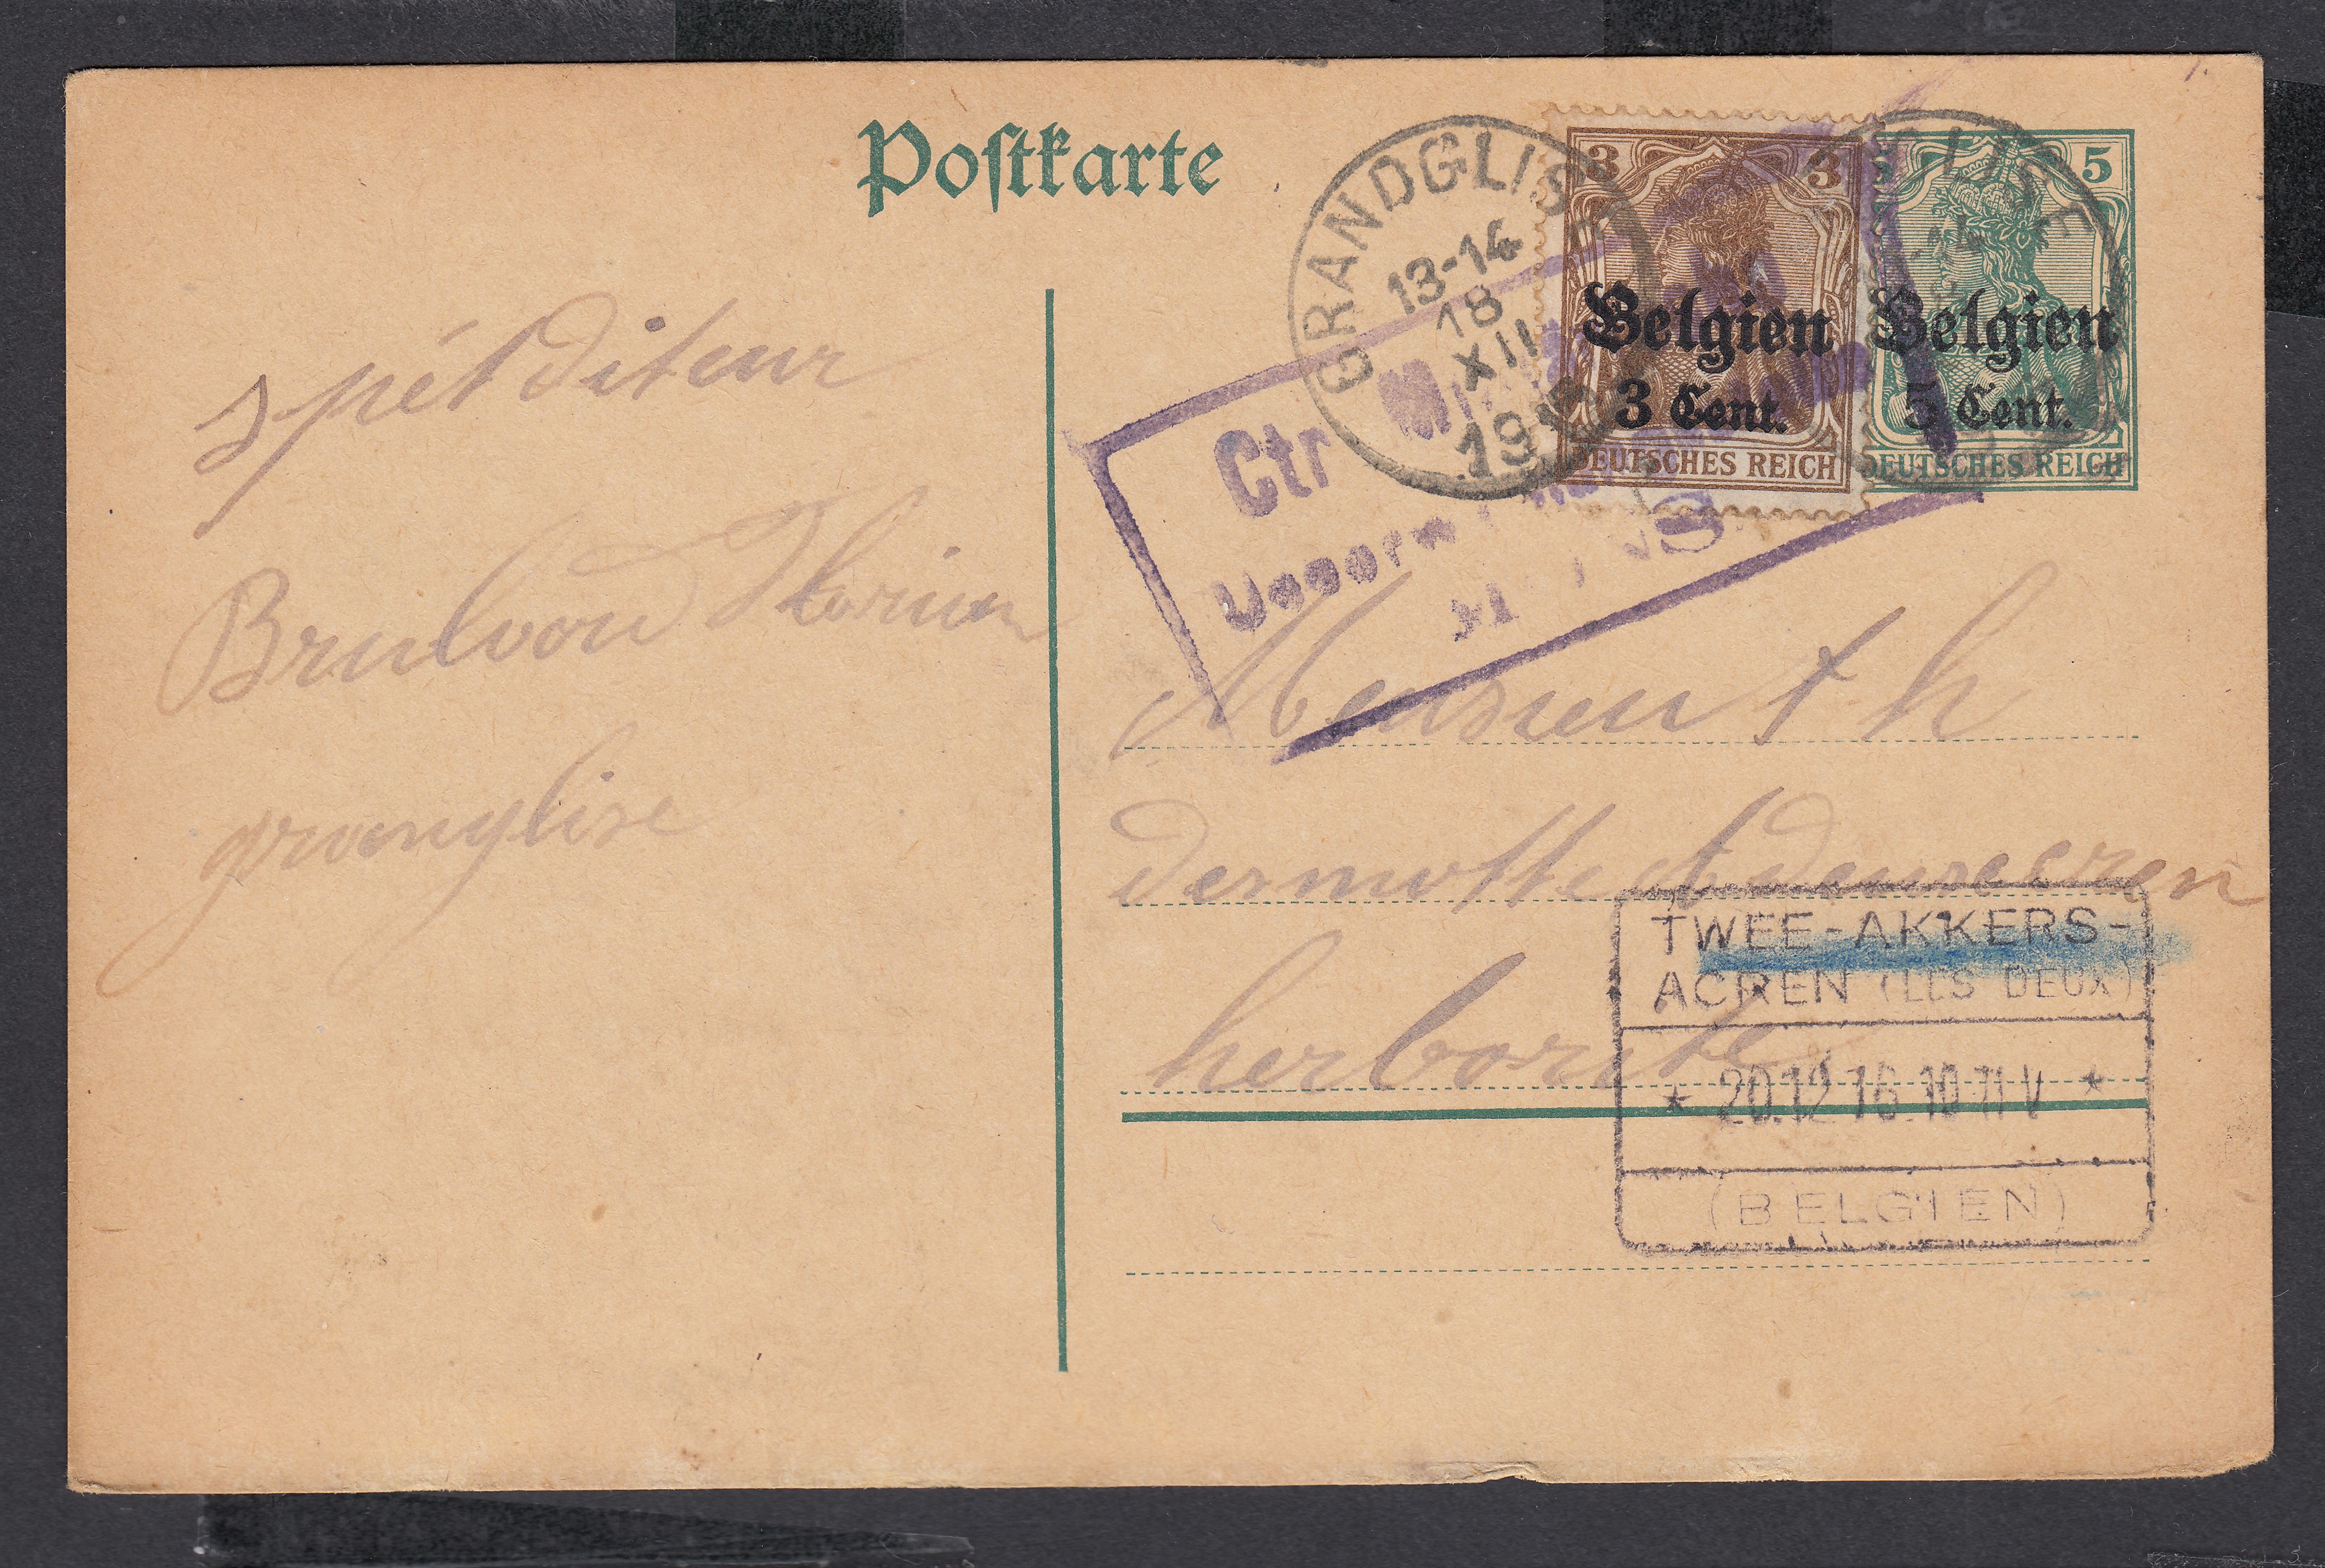 Postkarte
GRANDGLISE
13-14
18
XII
191
3 3
Belgien
3 Cent.
DEUTSCHES REICH
5
Belgien
5 Cent.
DEUTSCHES REICH
Ctr
spétditeur
Brulvou Florian
grwenglise
Monsieu
dermotte
herborite
TWEE-AKKERS-
ACREN (LES DEUX)
* 20.12 16.10-11 V *
(BELGIEN)